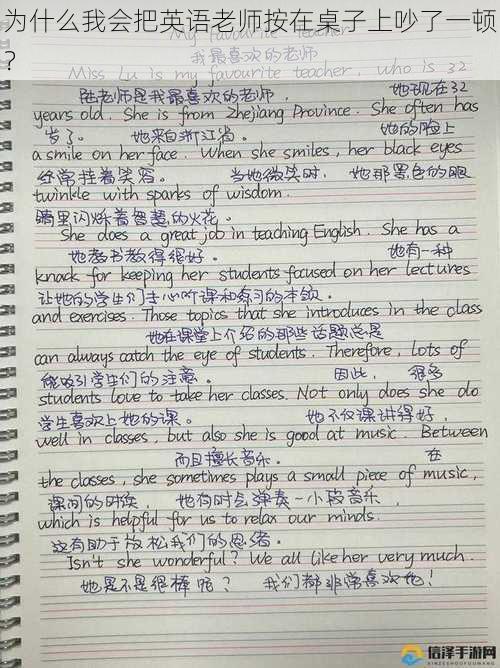 为什么我会把英语老师按在桌子上吵了一顿
?
My favourite teacher
我最喜欢的老师
Miss Lu is my favourite teacher, who is 32
陆老师是我最喜欢的老师， 她现在32
years old. She is from Zhejiang Province. She often has
岁了。 她来自浙江省。 她的脸上
a smile on her face. When she smiles, her black eyes
经常挂着笑容。 当她微笑时， 她那黑色的眼
twinkle with sparks of wisdom.
睛里闪烁着智慧的火花。
She does a great job in teaching English. She has a
她教书教得很好。 她有一种
knack for keeping her students focused on her lectures
让她的学生们专心听课和练习的本领。
and exercises. Those topics that she introduces in the class
她在课堂上介绍的那些话题总是
can always catch the eye of students. Therefore, lots of
能吸引学生们的注意。 因此， 很多
students love to take her classes. Not only does she do
学生喜欢上她的课。 她不仅课讲得好，
well in classes, but also she is good at music. Between
而且擅长音乐。 在
the classes, she sometimes plays a small piece of music,
课间的时候， 她有时会弹奏一小段音乐，
which is helpful for us to relax our minds.
这有助于放松我们的思绪。
Isn't she wonderful? We all like her very much.
她是不是很棒呢？ 我们都非常喜欢她！
信泽手游网
XINZESHOUYOUWANG